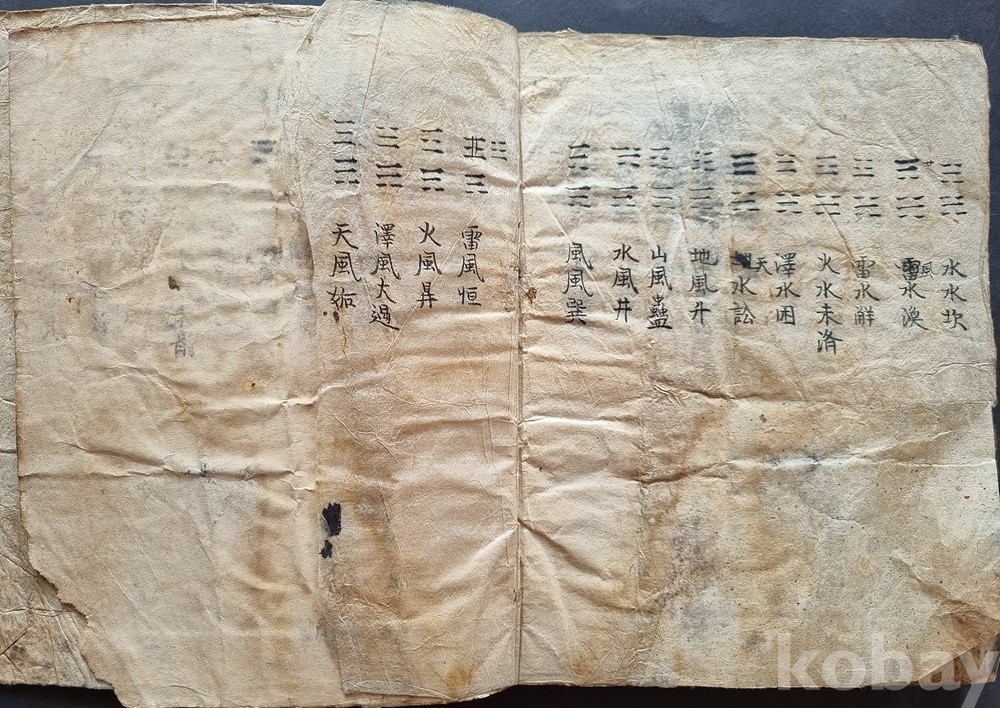 水水坎
風水渙
雷水解
火水未済
澤水困
天水訟
地風升
山風蠱
水風井
風風巽
雷風恒
火風鼎
澤風大過
天風姤
kobay